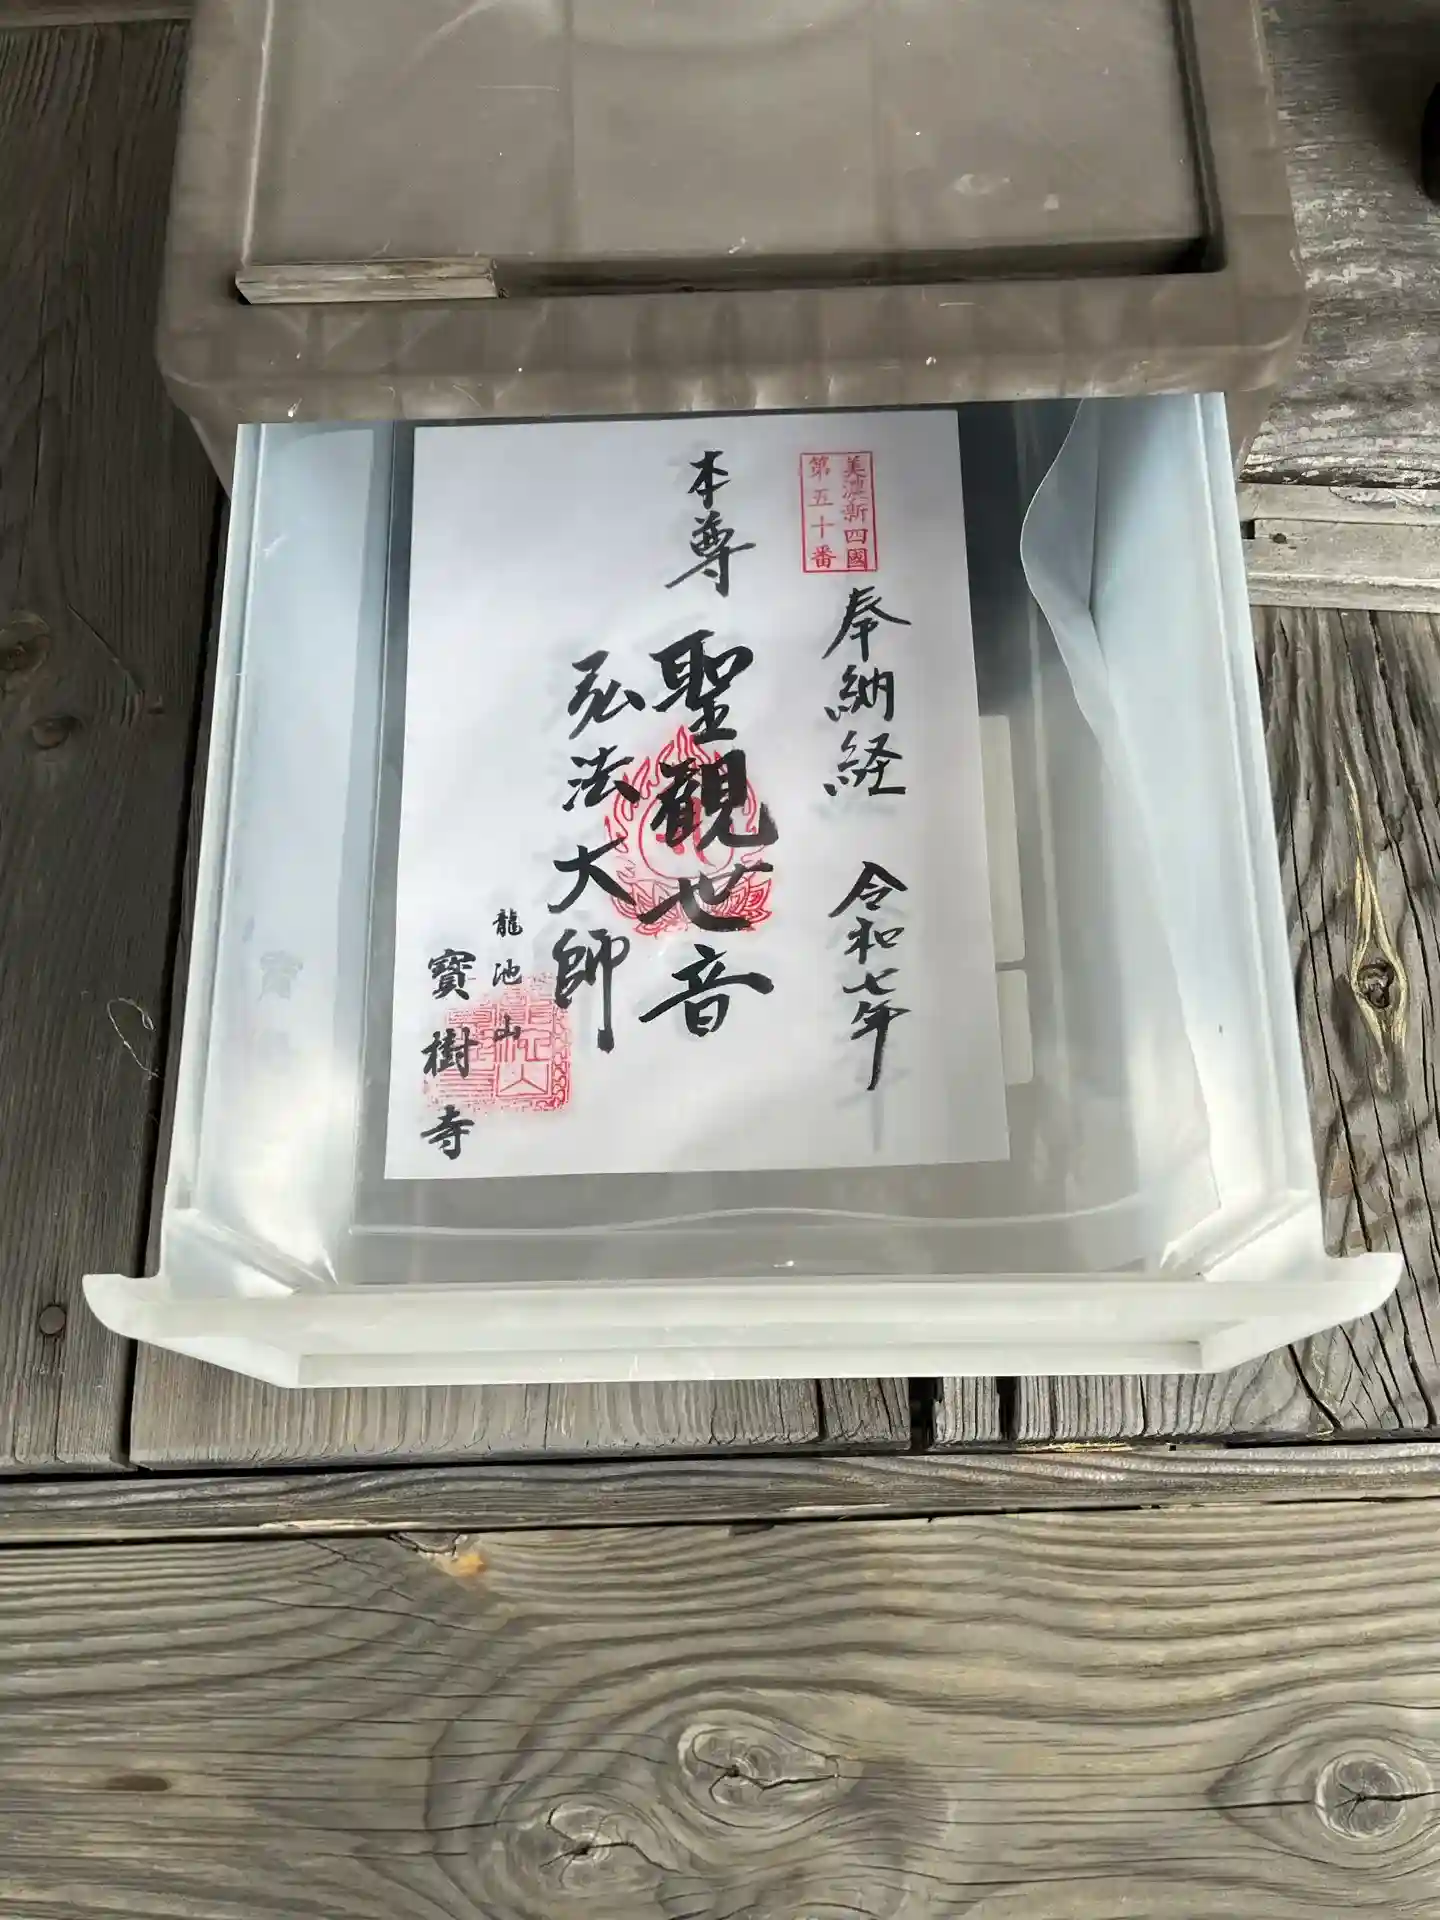 美濃新四國
第五十番
奉納経 令和七年
本尊 聖觀世音
弘法大師
龍池山
寳樹寺